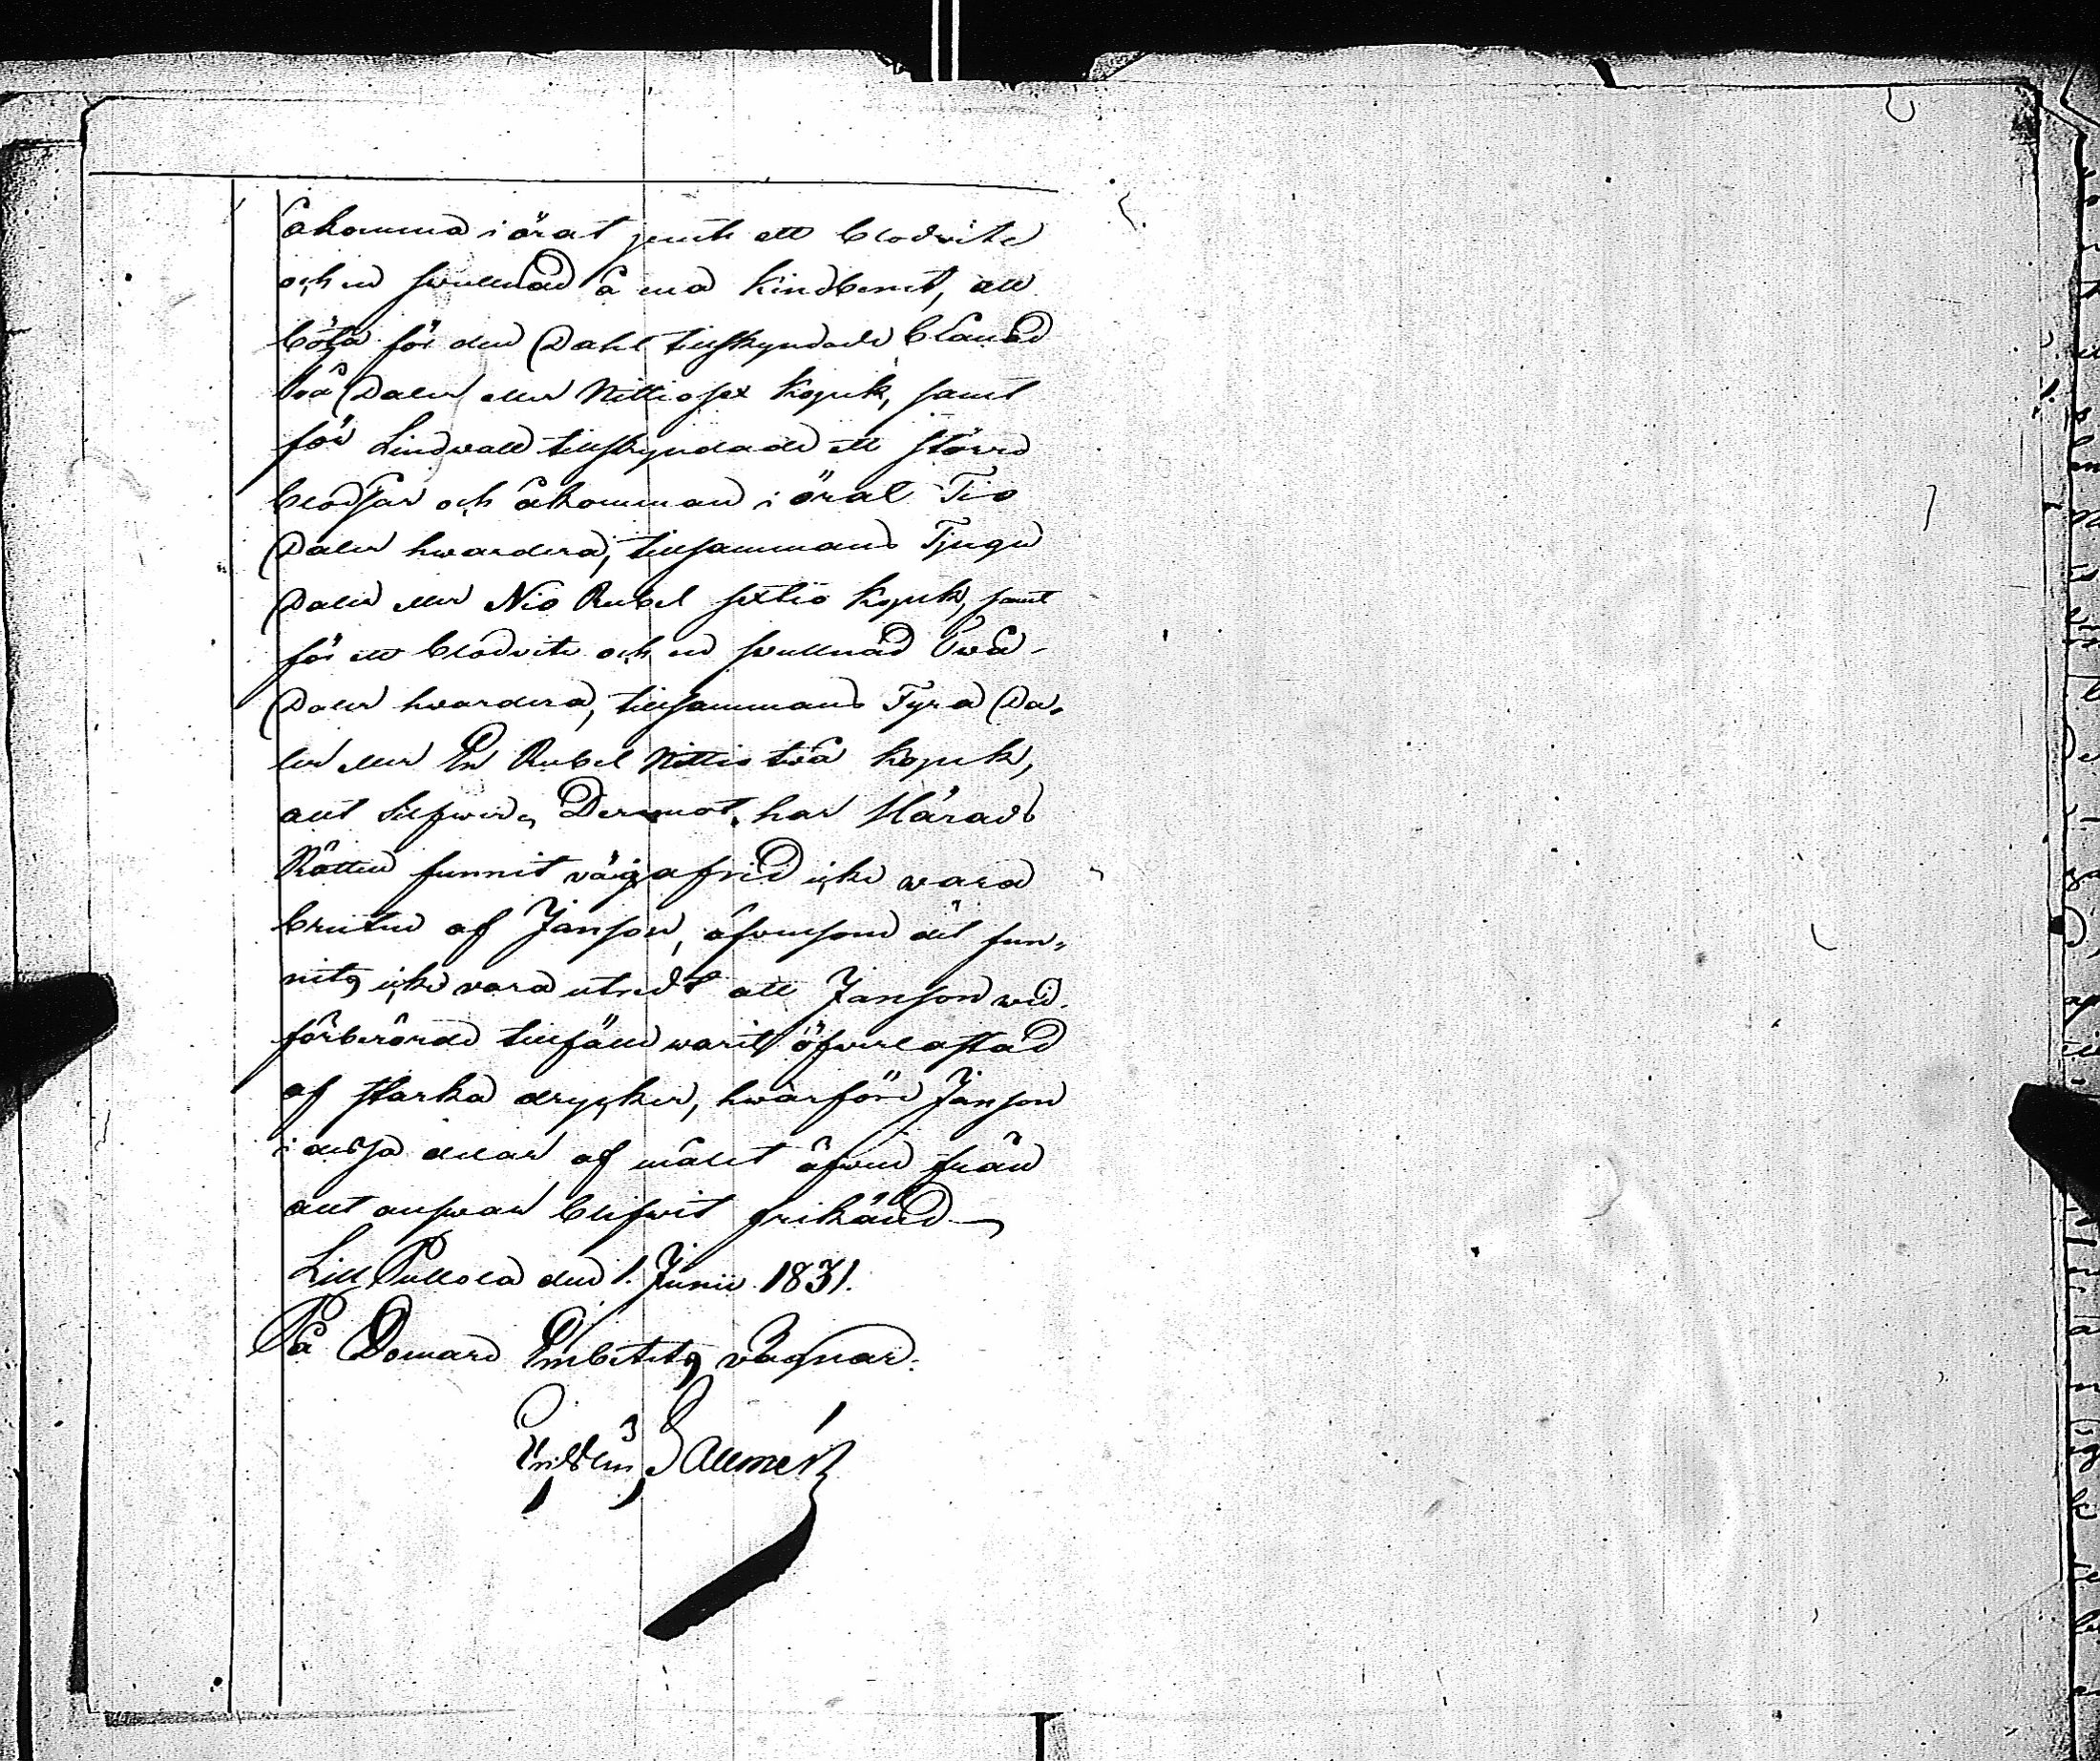 åkomma i örat jemte ett blodvite
och en svullnad å ena kindbenet, att
böta för den Dahl tillskyndade blånad
två Daler eller Nittiosex kopek, samt
för Lindvall tillskyndade ett större
blodsår och åkomman i örat Tio
Daler hvardera, tillsammans Tjugu
Daler eller Nio Rubel sextio kopek, samt
för ett blodvite och en svullnad Två
Daler hvardera, tillsammans Fyra Da-
ler eller En Rubel Nittio två kopek,
allt Silfver, Deremot har Härads
Rätten funnit vägafrid icke vara
bruten af Janson, äfvensom det fun-
nits icke vara utredt att Janson vid
förberörde tillfälle varit öfverlastad
af starka drycker, hvarföre Janson
i dessa delar af målet äfven från
allt answar blifvit frikänd
Lill Pullola den 1. Junii 1831.
På Domare Embetets vägnar.